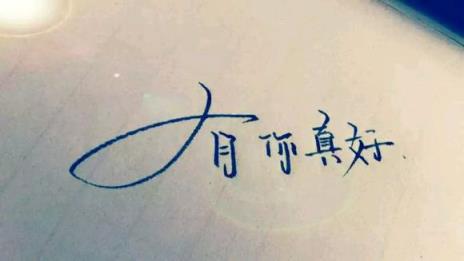 有你真好